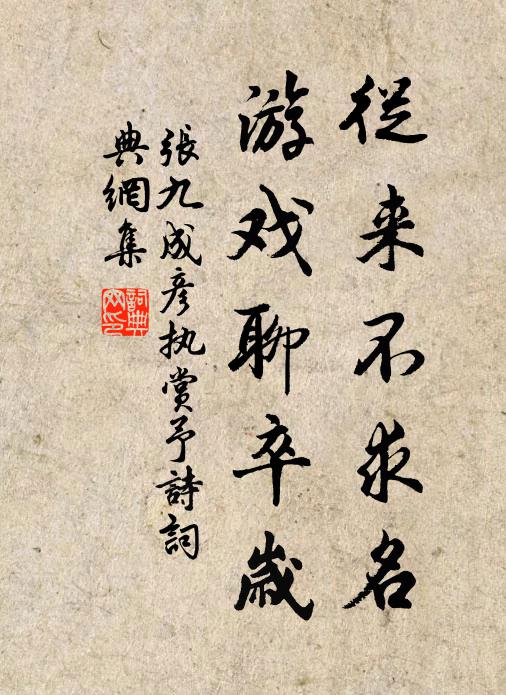 從来不求名
游戏聊卒歲
張九成彦执賞予詩詞
典網集
詞典
网印